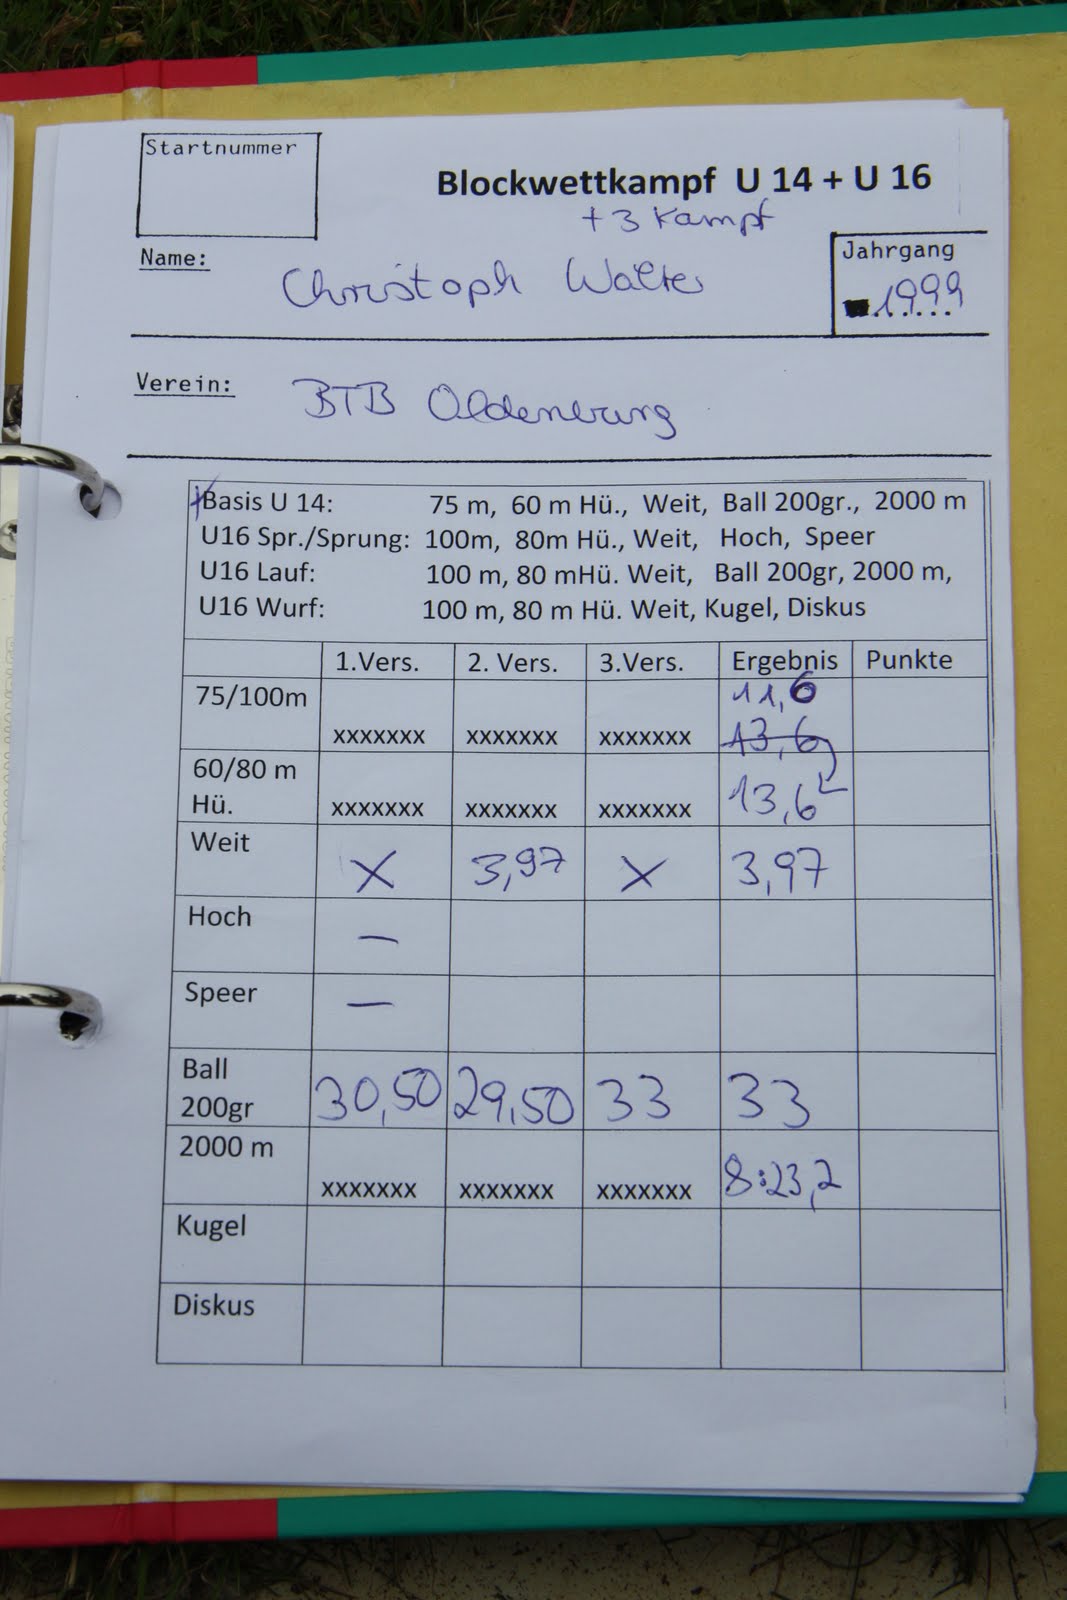 Startnummer
Blockwettkampf U 14 + U 16
+ 3 Kampf
Name: Christoph Walter
Jahrgang
1999
Verein: BTB Oldenburg
Basis U 14: 75 m, 60 m Hü., Weit, Ball 200gr., 2000 m
U16 Spr./Sprung: 100m, 80m Hü., Weit, Hoch, Speer
U16 Lauf: 100 m, 80 mHü. Weit, Ball 200gr, 2000 m,
U16 Wurf: 100 m, 80 m Hü. Weit, Kugel, Diskus
1.Vers. 2. Vers. 3.Vers. Ergebnis Punkte
75/100m 11,6
xxxxxxx xxxxxxx xxxxxxx 13,6
60/80 m
Hü. xxxxxxx xxxxxxx xxxxxxx 13,6
Weit X 3,97 X 3,97
Hoch –
Speer –
Ball
200gr 30,50 29,50 33 33
2000 m
xxxxxxx xxxxxxx xxxxxxx 8:23,2
Kugel
Diskus